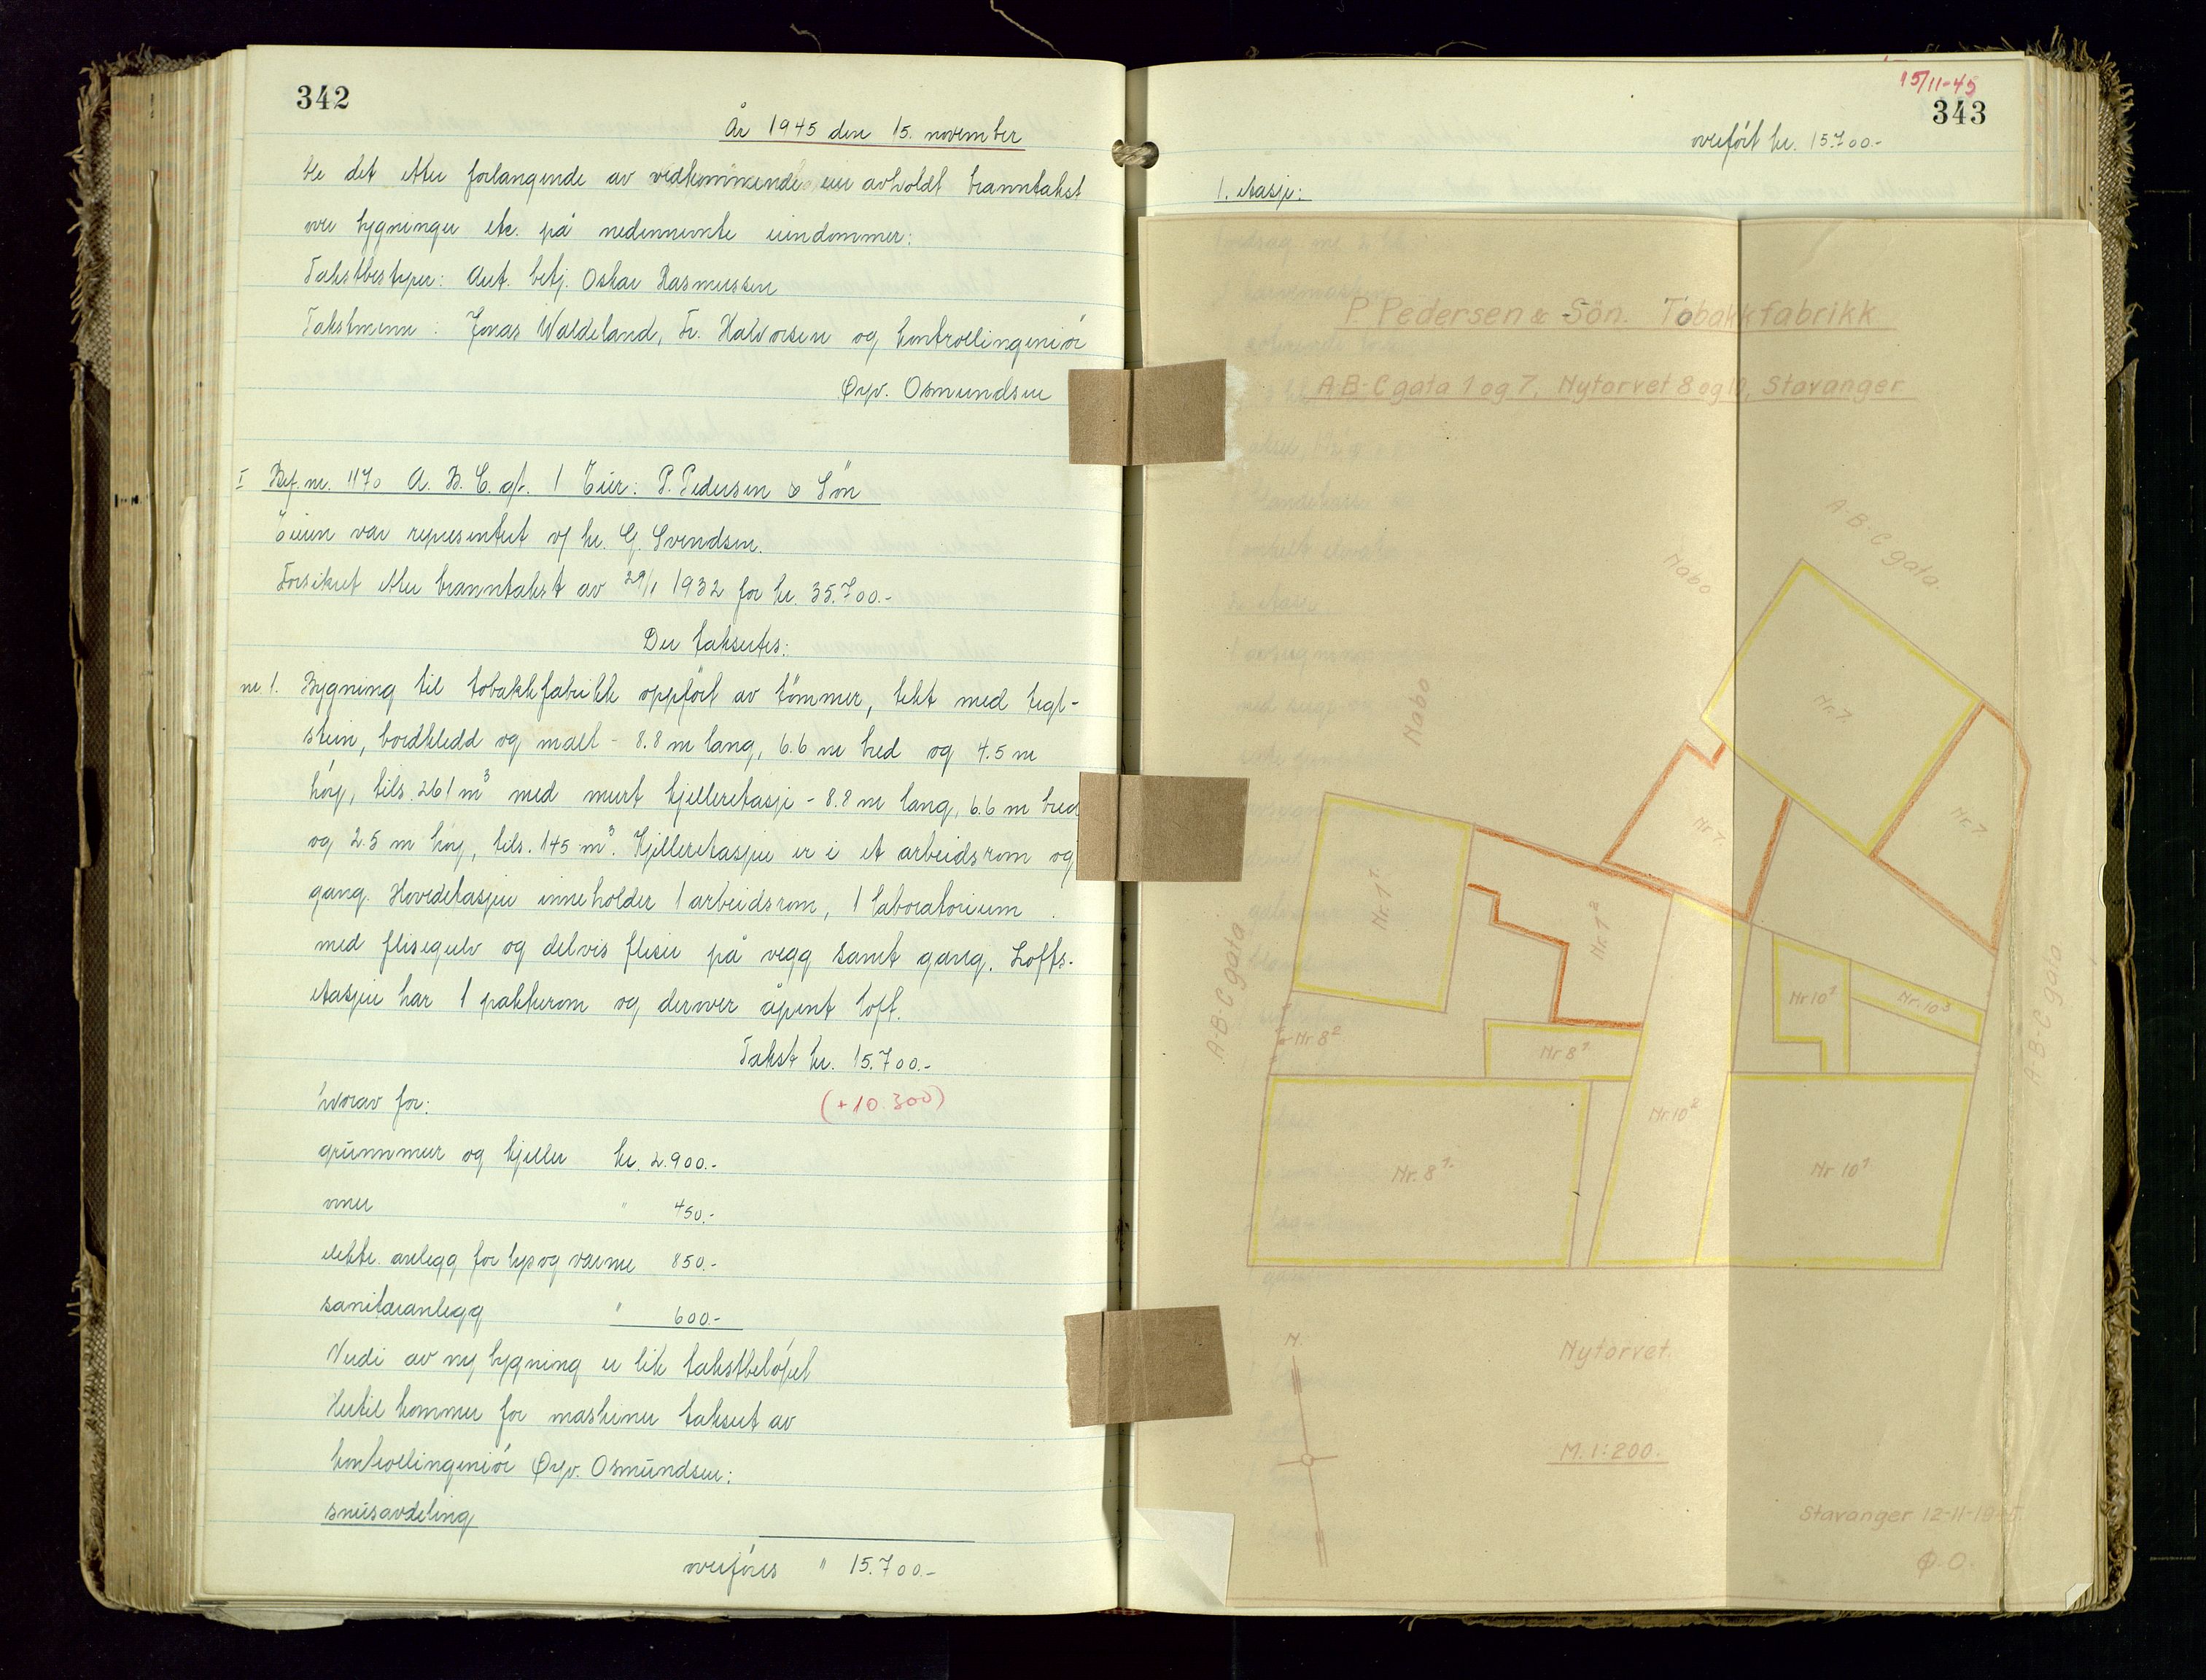 342
År 1945 den 15. november
ble det etter forlangende av vedkommende eier avholdt branntakst
over bygninger etc. på nedennevnte eiendommer:
Takstbestyrer: Aut. betj. Oskar Rasmussen
Takstmenn: Jonas Waldeland, Fr. Halvorsen og kontrollingeniór
Øyv. Osmundsen
I Bef. nr. 1170 A. B. C. gt. 1 Eier: P. Pedersen & Sön
Eieren var representert v/ hr. G. Svendsen.
Forsikret etter branntakst av 29/1 1932 for kr. 35.700.-
Der takseres:
nr. 1. Bygning til tobakkfabrikk oppfört av tömmer, tekt med tegl-
stein, bordkledd og malt - 8.8 m lang, 6.6 m bred og 4.5 m
hóy, tils. 261 m³ med murt kjelleretasje - 8.8 m lang, 6.6 m bred
og 2.5 m hóy, tils. 145 m³. Kjelleretasjen er i et arbeidsrom og
gang. Hovedetasjen inneholder 1 arbeidsrom, 1 laboratorium
med flisegulv og delvis fliser på vegg samt gang. Lofts-
etasjen har 1 pakkerom og derover åpent loft.
Takst kr. 15.700.-
hvorav for: (+10.300)
grunnmur og kjeller kr. 2.900.-
ovner " 450.-
elektr. anlegg for lys og varme 850.-
sanitæranlegg " 600.-
Verdi av ny bygning er lik takstbelópet
Hertil kommer for maskiner taksert av
kontrollingeniór Øyv. Osmundsen:
snusavdeling
overfóres " 15.700.-
15/11-45
343
overfórt kr. 15.700.-
1. etasje:
P. Pedersen & Sön. Tobakkfabrikk
A-B-C gata 1 og 7, Nytorvet 8 og 10, Stavanger
A-B-C gata.
Nabo
Nabo
Nr. 7.
Nr. 7
Nr. 7
Nr. 1¹
Nr. 1²
A-B-C gata
Nr 10¹
Nr. 10³
Nr 8²
Nr 8¹
A-B-C gata
Nr 10²
Nr. 8¹
Nr 10¹
N.
Nytorvet.
M. 1:200.
Stavanger 12-11-1945.
Ø. O.